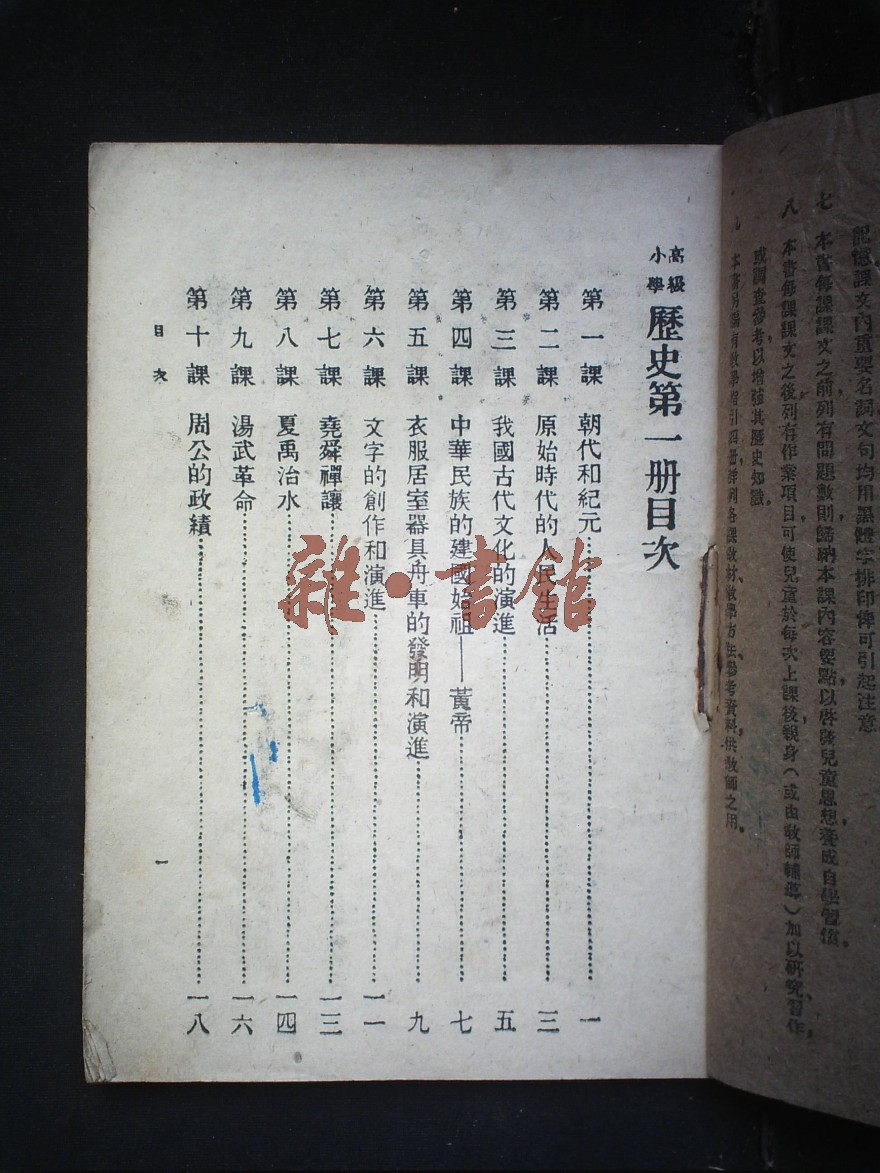 記憶課文內重要名詞文句均用黑體字排印俾可引起注意
七　本書每課課文之前列有問題數則歸納本課內容要點以啓發兒童思想養成自學習慣。
八　本書每課課文之後列有作業項目可使兒童於每次上課後親身（或由敎師輔導）加以硏究習作，
或調查參考以增強其歷史知識。
本書另編有敎學指引四册詳列各課敎材敎學方法參考資料供敎師之用。
高級小學 歷史第一册目次
第一課　朝代和紀元……一
第二課　原始時代的人民生活……三
第三課　我國古代文化的演進……五
第四課　中華民族的建國始祖——黃帝……七
第五課　衣服居室器具舟車的發明和演進……九
第六課　文字的創作和演進……一一
第七課　堯舜禪讓……一三
第八課　夏禹治水……一四
第九課　湯武革命……一六
第十課　周公的政績……一八
目次
一
雜·書館